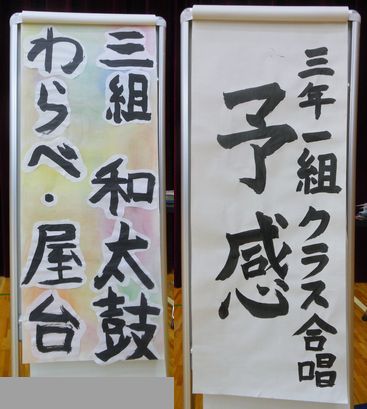 三組 和太鼓
わらべ・屋台
三年一組 クラス合唱
予感